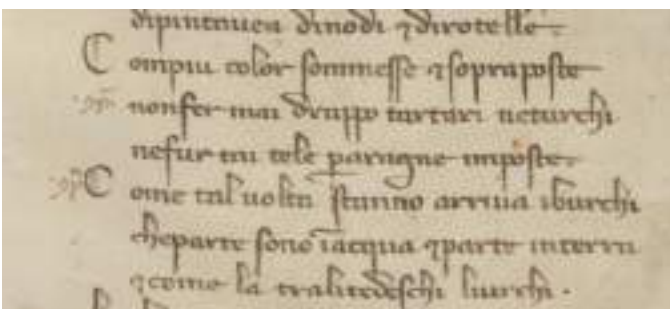 dipintauea dinodi ⁊dirotelle.
Compiu color sommesse ⁊sopraposte
nonfer mai drappo tartari neturchi
nefur tai tele paragne imposte.
Come taluolta stanno arriua iburchi
cheparte sono iacqua ⁊parte interra
⁊come la tralitedeschi liurchi.